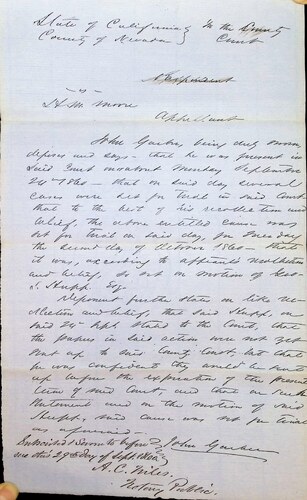 State of California } In the County
County of Nevada } Court
Respondent
vs
H. M. Moore
Appellant
John being duly sworn,
deposes and says - that he was present in
said Court on about Monday September
24th 1860 - that on said day several
cases were set for trial in said Court
that to the best of his recollection and
belief, the above entitled cause was
set for trial on said day, for Tuesday
the second day of October 1860 - that
it was, according to affiants recollection
and belief, so set on motion of
Esq
Deponent further states on like re-
collection and belief, that said on
said 24th Sept stated to the Court, that
the papers in said action were not yet
sent up to said County Court, but that
he was confident they would be sent
up before the expiration of the present
term of said Court, and that on such
statement and on the motion of said
said cause was set for trial
as aforesaid -
Subscribed & Sworn to before } John
me this 29th day of Sept. 1860
A. C. Niles
Notary Public